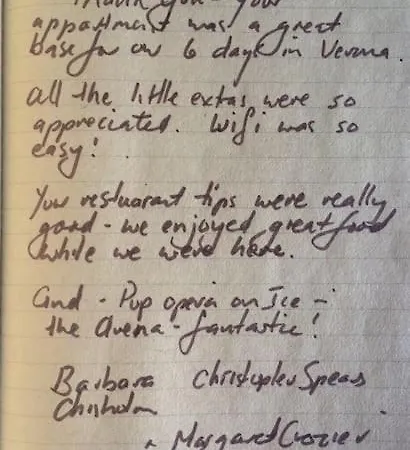 Thank you - your
appartment was a great
base for our 6 days in Verona.
All the little extras were so
appreciated. Wifi was so
easy!
Your restuarant tips were really
good - we enjoyed great food
while we were here.
And - Pop opera on Ice -
the Arena - fantastic!
Barbara Christopher Spears
Chisholm
Margaret Crozier